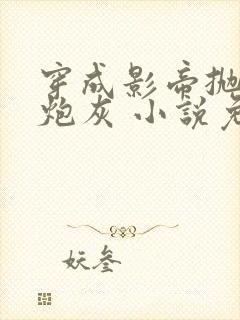 穿成影帝拋
炮灰 小說
妖叁